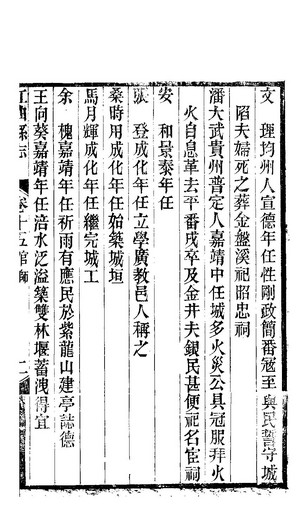 文　理均州人宣德年任性剛政簡番寇至與民誓守城
陷夫婦死之葬金盤溪祀昭忠祠
潘大武貴州普定人嘉靖中任城多火災公具冠服拜火
火自息革去平番戍卒及金井夫鎖民甚便祀名宦祠
安　和景泰年任
張　登成化年任立學廣教邑人稱之
桑時用成化年任始築城垣
馬月輝成化年任繼完城工
余　槐嘉靖年任祈雨有應民於紫龍山建亭誌德
王向葵嘉靖年任涪水泛溢築雙林堰蓄洩得宜
江油縣志　卷十五官師　二